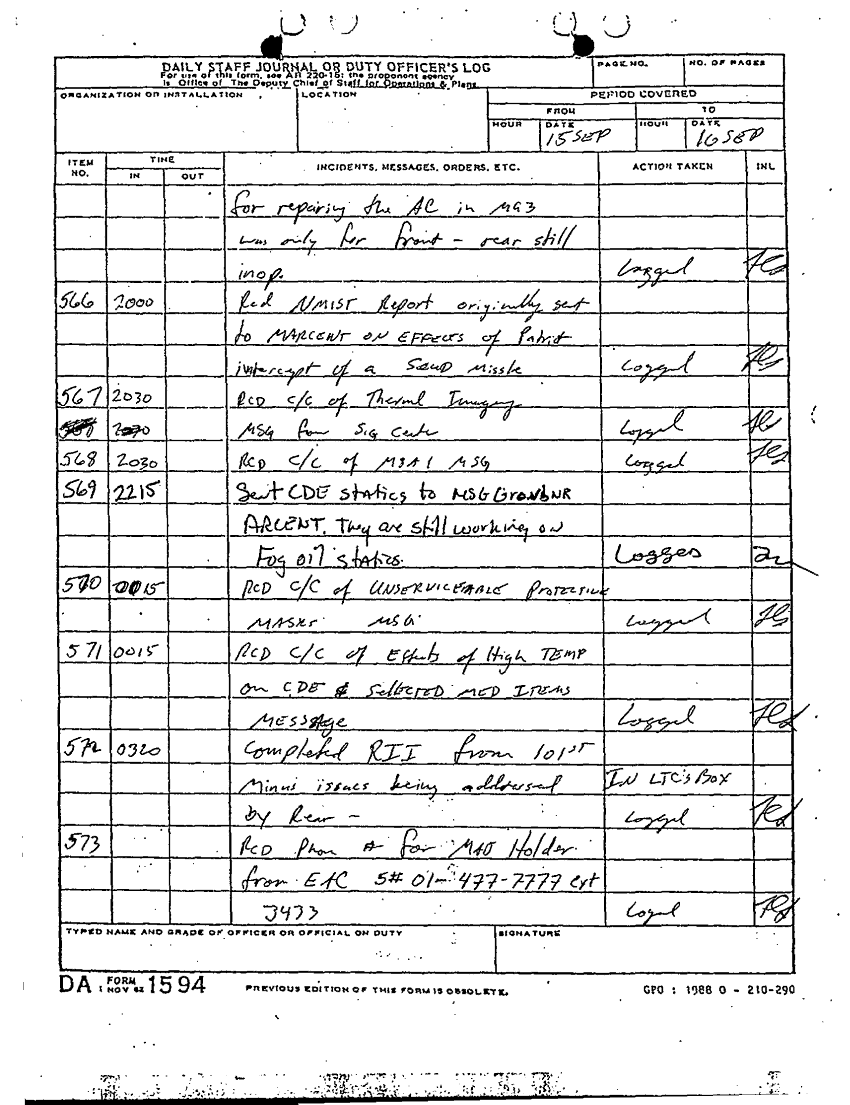 DAILY STAFF JOURNAL OR DUTY OFFICER'S LOG
For use of this form, see AR 220-15; the proponent agency
is Office of The Deputy Chief of Staff for Operations & Plans.
PAGE NO.
NO. OF PAGES
ORGANIZATION OR INSTALLATION
LOCATION
PERIOD COVERED
FROM
TO
HOUR
DATE
15 SEP
HOUR
DATE
16 SEP
ITEM NO.
TIME
IN
OUT
INCIDENTS, MESSAGES, ORDERS, ETC.
ACTION TAKEN
INL
for repairing the AC in M93
was only for front - rear still
inop. Logged
566 2000 Rcd NMIST Report originally sent
to MARCENT ON EFFECTS of Patriot
intercept of a SCUD Missle Logged
567 2030 RCD C/C of Thermal Imagery
MSG from Sig Center Logged
568 2030 RCD C/C of M8A1 MSG Logged
569 2215 Sent CDE statics to MSG
ARCENT. They are still working on
Fog oil statics. Logged
570 0015 RCD C/C of UNSERVICEABLE PROTECTIVE
MASKS MSG. Logged
571 0015 RCD C/C of Effects of High TEMP
on CDE & SELECTED MED ITEMS
MESSAge Logged
572 0320 Completed RII from 101st
Minus issues being addressed IN LTC'S BOX
by Rear - Logged
573 RCD Phone # for Holder
from EAC 5# 01-477-7777 ext
3433 Logged
TYPED NAME AND GRADE OF OFFICER OR OFFICIAL ON DUTY
SIGNATURE
DA FORM 1 NOV 62 1594
PREVIOUS EDITION OF THIS FORM IS OBSOLETE.
GPO : 1988 O - 210-290